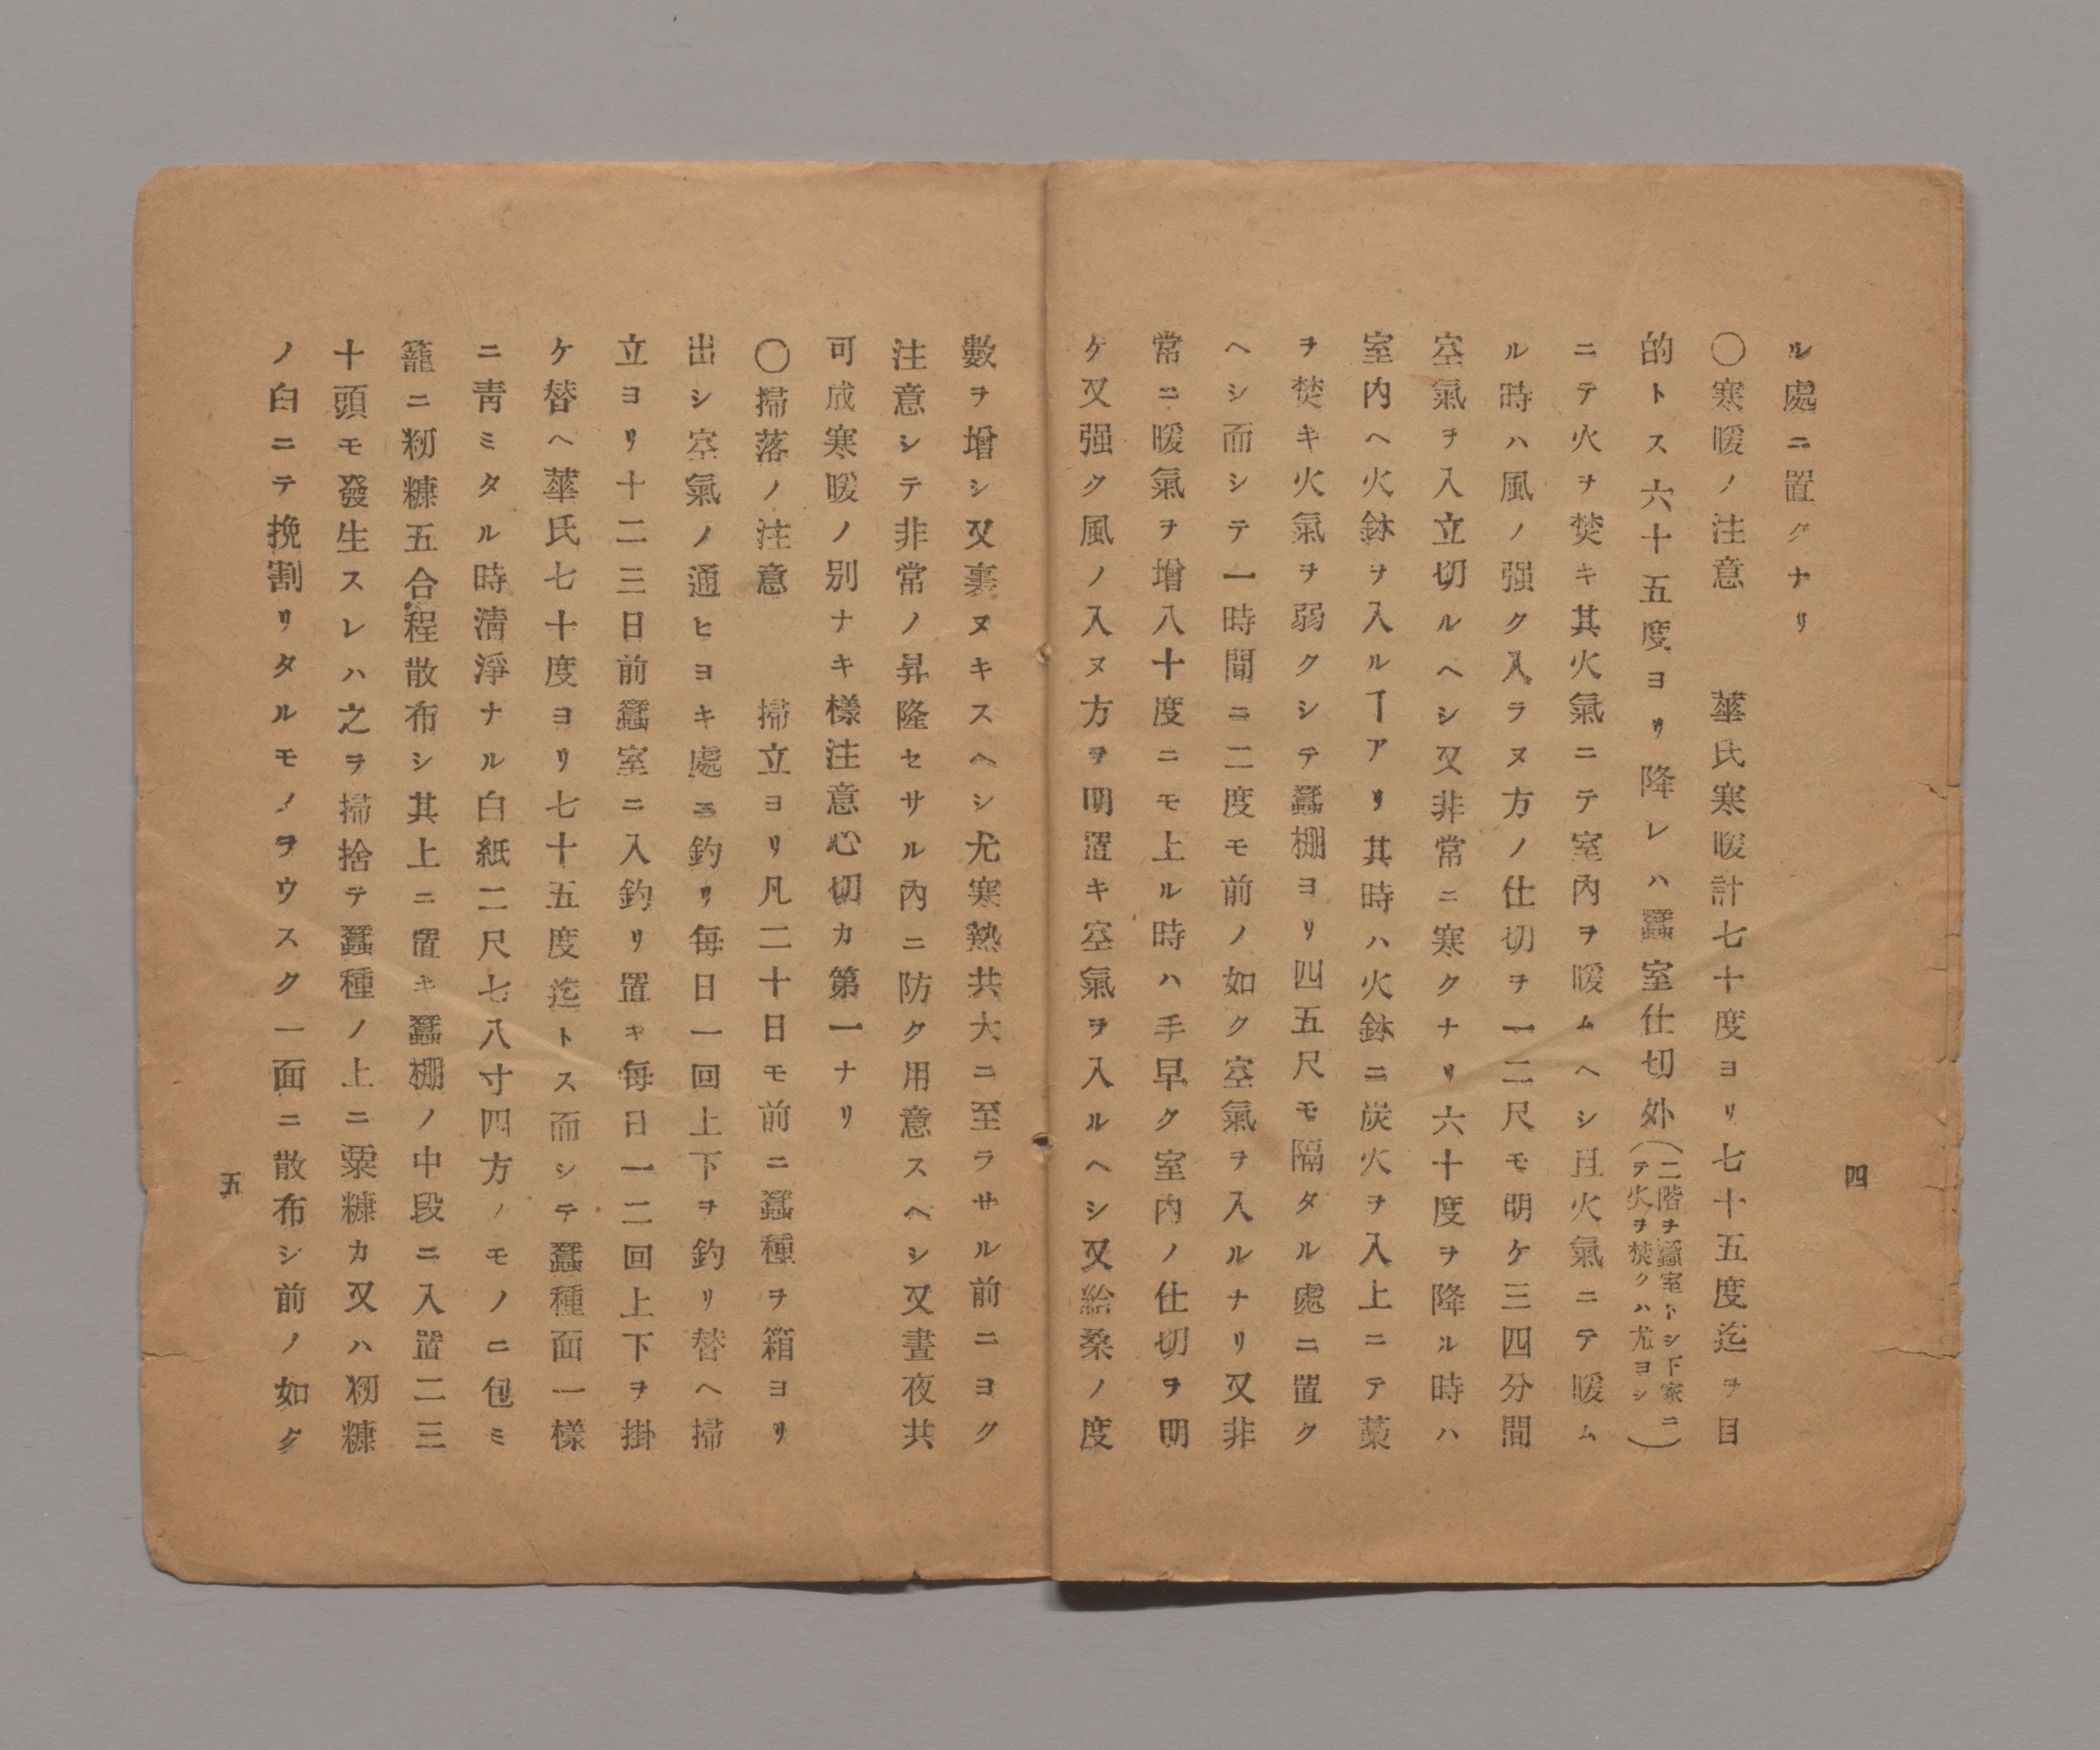 四
ル處ニ置クナリ
〇寒暖ノ注意　　華氏寒暖計七十度ヨリ七十五度迄ヲ目
的トス六十五度ヨリ降レハ蠶室仕切外（二階ヲ蠶室トシ下家ニテ火ヲ焚クハ尤ヨシ）
ニテ火ヲ焚キ其火氣ニテ室內ヲ暖ムヘシ且火氣ニテ暖ム
ル時ハ風ノ强ク入ラヌ方ノ仕切ヲ一二尺モ明ケ三四分間
空氣ヲ入立切ルヘシ又非常ニ寒クナリ六十度ヲ降ル時ハ
室内ヘ火鉢ヲ入ルヿアリ其時ハ火鉢ニ炭火ヲ入上ニテ藁
ヲ焚キ火氣ヲ弱クシテ蠶棚ヨリ四五尺モ隔タル處ニ置ク
ヘシ而シテ一時間ニ二度モ前ノ如ク空氣ヲ入ルナリ又非
常ニ暖氣ヲ增八十度ニモ上ル時ハ手早ク室内ノ仕切ヲ明
ケ又强ク風ノ入ヌ方ヲ明置キ空氣ヲ入ルヘシ又給桑ノ度
數ヲ增シ又裏ヌキスヘシ尤寒熱共大ニ至ラサル前ニヨク
注意シテ非常ノ昇隆セサル內ニ防ク用意スヘシ又晝夜共
可成寒暖ノ別ナキ樣注意心切カ第一ナリ
〇掃落ノ注意　　掃立ヨリ凡二十日モ前ニ蠶種ヲ箱ヨリ
出シ空氣ノ通ヒヨキ處ニ釣リ每日一回上下ヲ釣リ替ヘ掃
立ヨリ十二三日前蠶室ニ入釣リ置キ每日一二回上下ヲ掛
ケ替ヘ華氏七十度ヨリ七十五度迄トス而シテ蠶種面一樣
ニ靑ミタル時淸淨ナル白紙二尺七八寸四方ノモノニ包ミ
籠ニ籾糠五合程散布シ其上ニ置キ蠶棚ノ中段ニ入置二三
十頭モ發生スレハ之ヲ掃捨テ蠶種ノ上ニ粟糠カ又ハ籾糠
ノ臼ニテ挽割リタルモノヲウスク一面ニ散布シ前ノ如ク
五